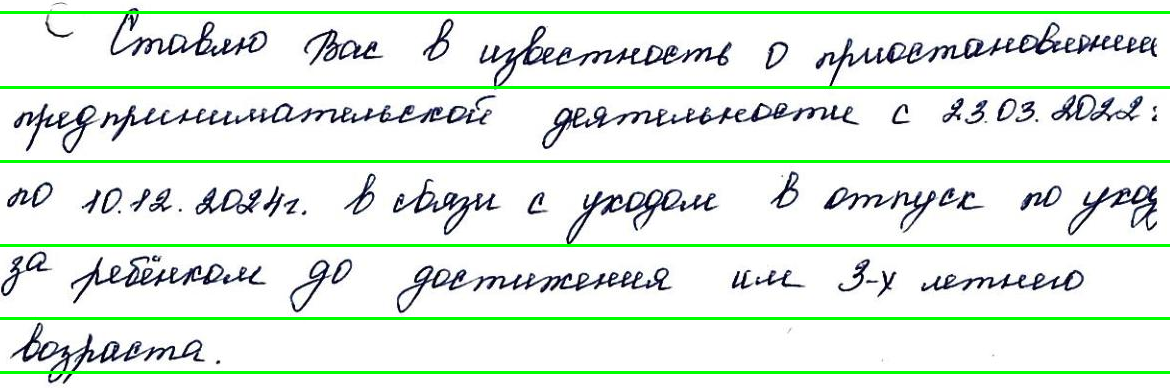 Ставлю Вас в известность о приостановлении
предпринимательской деятельности с 23.03.2022г
по 10.12.2024г. в связи с уходом в отпуск по уход
за ребёнком до достижения им 3-х летнего
возраста.